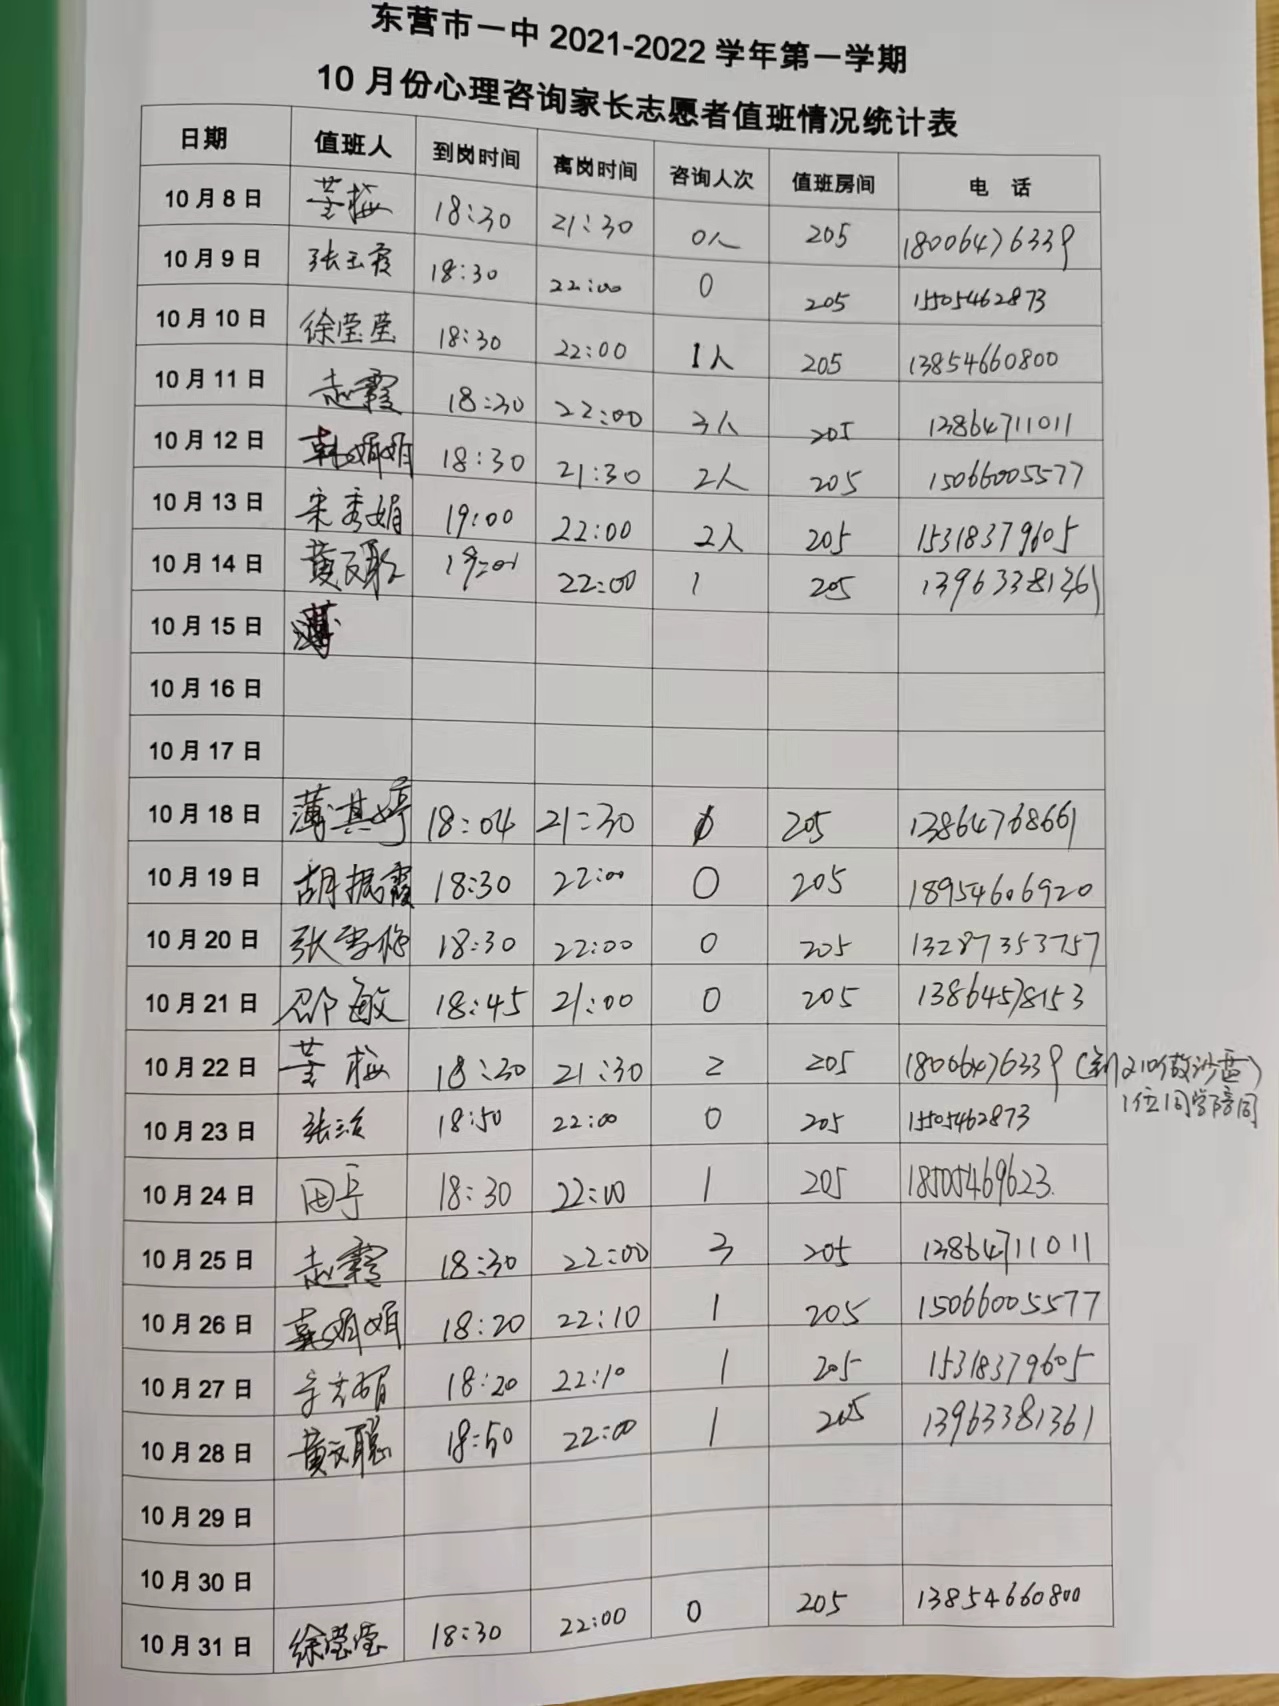 东营市一中 2021-2022 学年第一学期
10 月份心理咨询家长志愿者值班情况统计表
日期 值班人 到岗时间 离岗时间 咨询人次 值班房间 电 话
10 月 8 日 董梅 18:30 21:30 0人 205 18006476339
10 月 9 日 张玉霞 18:30 22:00 0 205 15505462873
10 月 10 日 徐莹莹 18:30 22:00 1人 205 13854660800
10 月 11 日 赵霞 18:30 22:00 3人 205 13864711011
10 月 12 日 韩娟娟 18:30 21:30 2人 205 15066005577
10 月 13 日 宋秀娟 19:00 22:00 2人 205 15318379605
10 月 14 日 黄文聪 22:00 1 205 13963381361
10 月 15 日
10 月 16 日
10 月 17 日
10 月 18 日 薄其婷 18:04 21:30 0 205 13864768661
10 月 19 日 胡振霞 18:30 22:00 0 205 18954606920
10 月 20 日 张雪梅 18:30 22:00 0 205 13287353757
10 月 21 日 邵敏 18:45 21:00 0 205 13864578153
10 月 22 日 董梅 18:30 21:30 2 205 18006476339 (到210做沙盘)
1位同学陪同
10 月 23 日 18:50 22:00 0 205 15505462873
10 月 24 日 18:30 22:00 1 205 18505469623.
10 月 25 日 赵霞 18:30 22:00 3 205 13864711011
10 月 26 日 韩娟娟 18:20 22:10 1 205 15066005577
10 月 27 日 宋秀娟 18:20 22:10 1 205 15318379605
10 月 28 日 黄文聪 18:50 22:00 1 205 13963381361
10 月 29 日
10 月 30 日
10 月 31 日 徐莹莹 18:30 22:00 0 205 13854660800